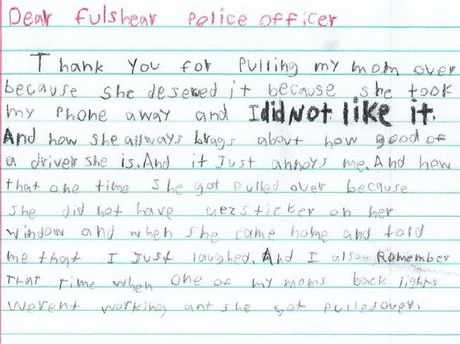 Dear fulshear Police officer
Thank you for Pulling my mom over
because she deseved it because she took
my Phone away and I did Not like it.
And how she allways brags about how good of
a driver she is. And it Just annoys me. And how
that one time she got Pulled over because
she did not have a erzsticker on her
window and when she came home and told
me that I Just laughed. And I also Remember
That Time when one of my moms back lights
Werent working ant she got Pulled over.